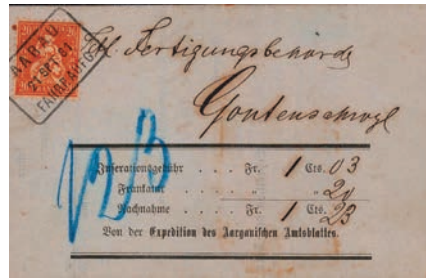 20
AARAU
21 SPT 81
FAHRPOSTG
Fertigungsbehörde
Gontenschwyl
123
Inserationsgebühr . . . . Fr. 1 Cts. 03
Frankatur . . . . . " 20
Nachnahme . . . . . Fr. 1 Cts. 23
Von der Expedition des Aargauischen Amtsblattes.